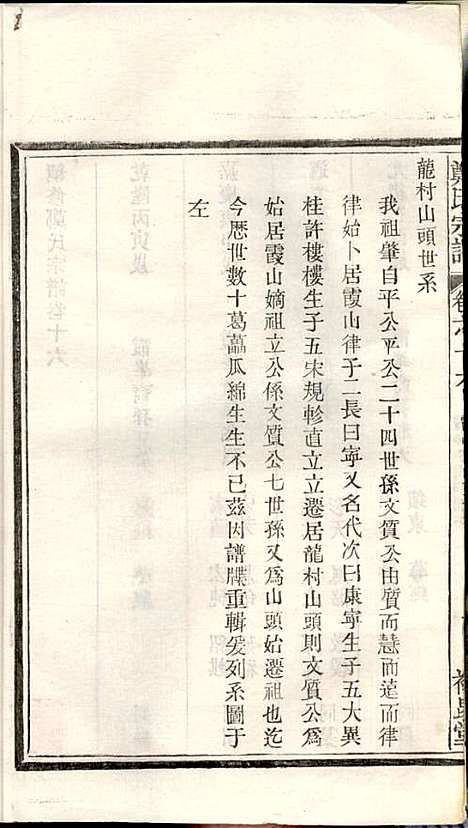 鄭氏宗譜
龍村山頭世系
我祖肇自平公平公二十四世孫文質公由質而慧而遠而律
律始卜居霞山律子二長曰寧又名代次曰康寧生子五大異
桂許樓樓生子五宋規軫直立立遷居龍村山頭則文質公為
始居霞山嫡祖立公係文質公七世孫又為山頭始遷祖也迄
今歷世數十葛藟瓜綿生生不已茲因譜牒重輯爰列系圖于
左